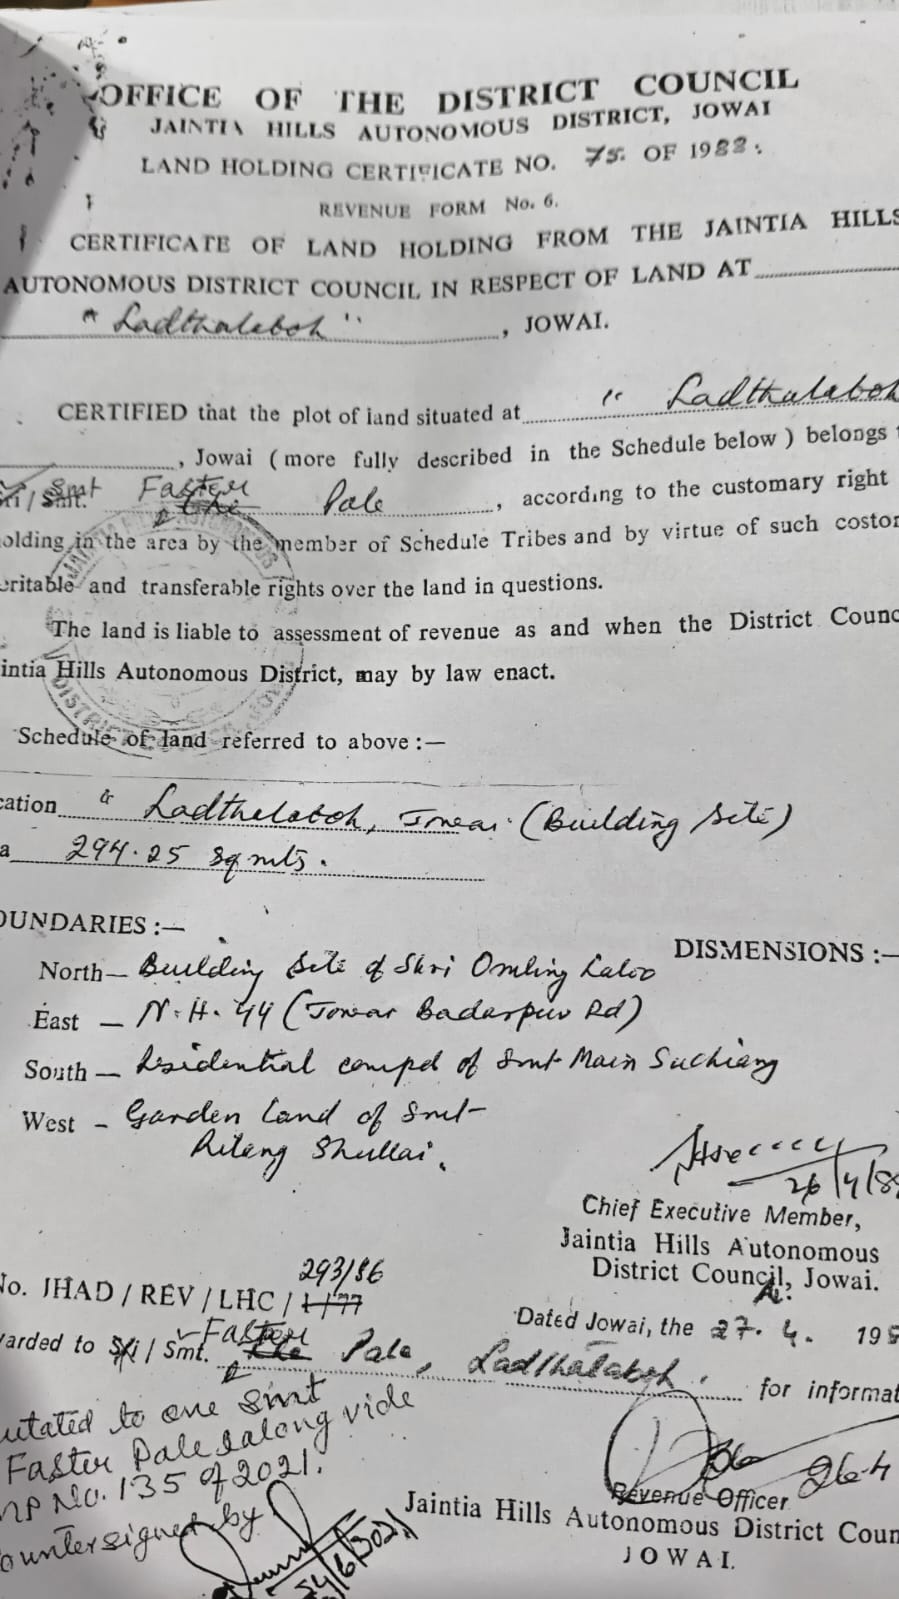 OFFICE OF THE DISTRICT COUNCIL
JAINTIA HILLS AUTONOMOUS DISTRICT, JOWAI
LAND HOLDING CERTIFICATE NO. 75. OF 1988.
REVENUE FORM No. 6.
CERTIFICATE OF LAND HOLDING FROM THE JAINTIA HILLS
AUTONOMOUS DISTRICT COUNCIL IN RESPECT OF LAND AT
"Ladthalaboh", JOWAI.
CERTIFIED that the plot of land situated at " Ladthalaboh
, Jowai ( more fully described in the Schedule below ) belongs t
ri / Smt. Smt Faster Pale, according to the customary right
olding in the area by the member of Schedule Tribes and by virtue of such costom
eritable and transferable rights over the land in questions.
The land is liable to assessment of revenue as and when the District Counc
intia Hills Autonomous District, may by law enact.
Schedule of land referred to above :—
cation Ladthalaboh, Jowai (Building Site)
a 294.25 Sq mts.
OUNDARIES :—
DISMENSIONS :—
North— Building Site of Shri Omling Laloo
East — N.H. 44 (Jowai Badarpur Rd)
South — Residential compd of Smt Main Suchiang
West - Garden Land of Smt
Ritang Shullai.
26/4/88
Chief Executive Member,
Jaintia Hills Autonomous
District Council, Jowai.
293/86
No. JHAD / REV / LHC / 1/77
Dated Jowai, the 27. 4. 198
warded to Sri / Smt. Faster Pale, Ladthalaboh. for informat
utated to one Smt
Faster Pale lalong vide
MP No. 135 of 2021.
ountersigned by
26-4
Revenue Officer
Jaintia Hills Autonomous District Coun
JOWAI.